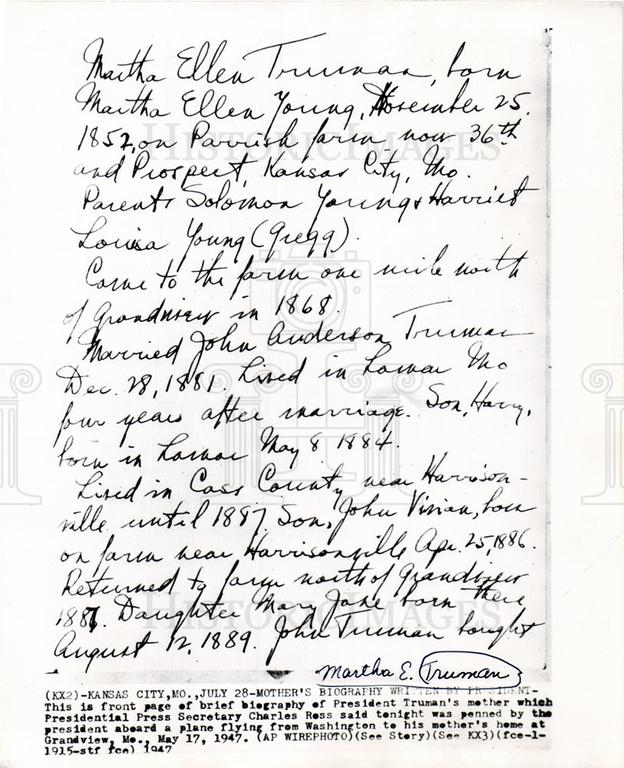 Martha Ellen Truman, born
Martha Ellen Young, November 25,
1852, on Parrish farm now 36th
and Prospect, Kansas City, Mo.
Parents Solomon Young & Harriet
Louisa Young (Gregg).
Came to the farm one mile north
of Grandview in 1868.
Married John Anderson Truman
Dec. 28, 1881. Lived in Lamar Mo
four years after marriage. Son, Harry,
born in Lamar May 8 1884.
Lived in Cass County, near Harrison-
ville until 1887. Son, John Vivian, born
on farm near Harrisonville Apr. 25, 1886.
Returned to farm north of Grandview
1887. Daughter Mary Jane born there
August 12, 1889. John Truman bought
Martha E. Truman
(KX2)-KANSAS CITY,MO.,JULY 28-MOTHER'S BIOGRAPHY WRITTEN BY PRESIDENT-
This is front page of brief biography of President Truman's mother which
Presidential Press Secretary Charles Ross said tonight was penned by the
president aboard a plane flying from Washington to his mother's home at
Grandview, Mo., May 17, 1947. (AP WIREPHOTO)(See Story)(See KX3)(fce-1-
1915-stf fce) 1947
HISTORIC IMAGES
HISTORIC IMAGES